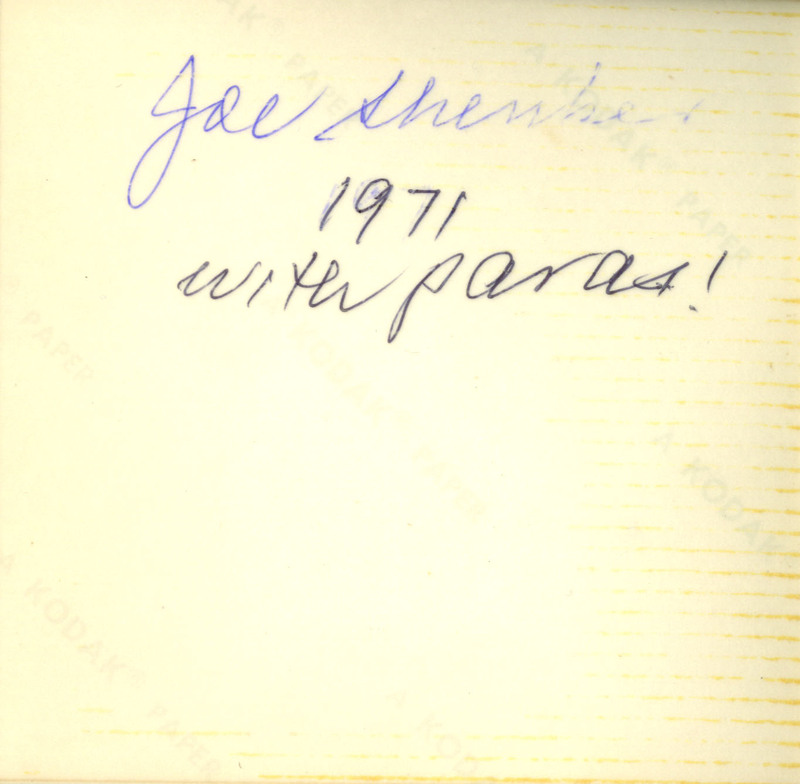 Joe
1971
with paras!
KODAK® PAPER
A KODAK® PAPER
® PAPER
KODAK® PAPER
A KODAK
A KODAK® PAPER
A KOD